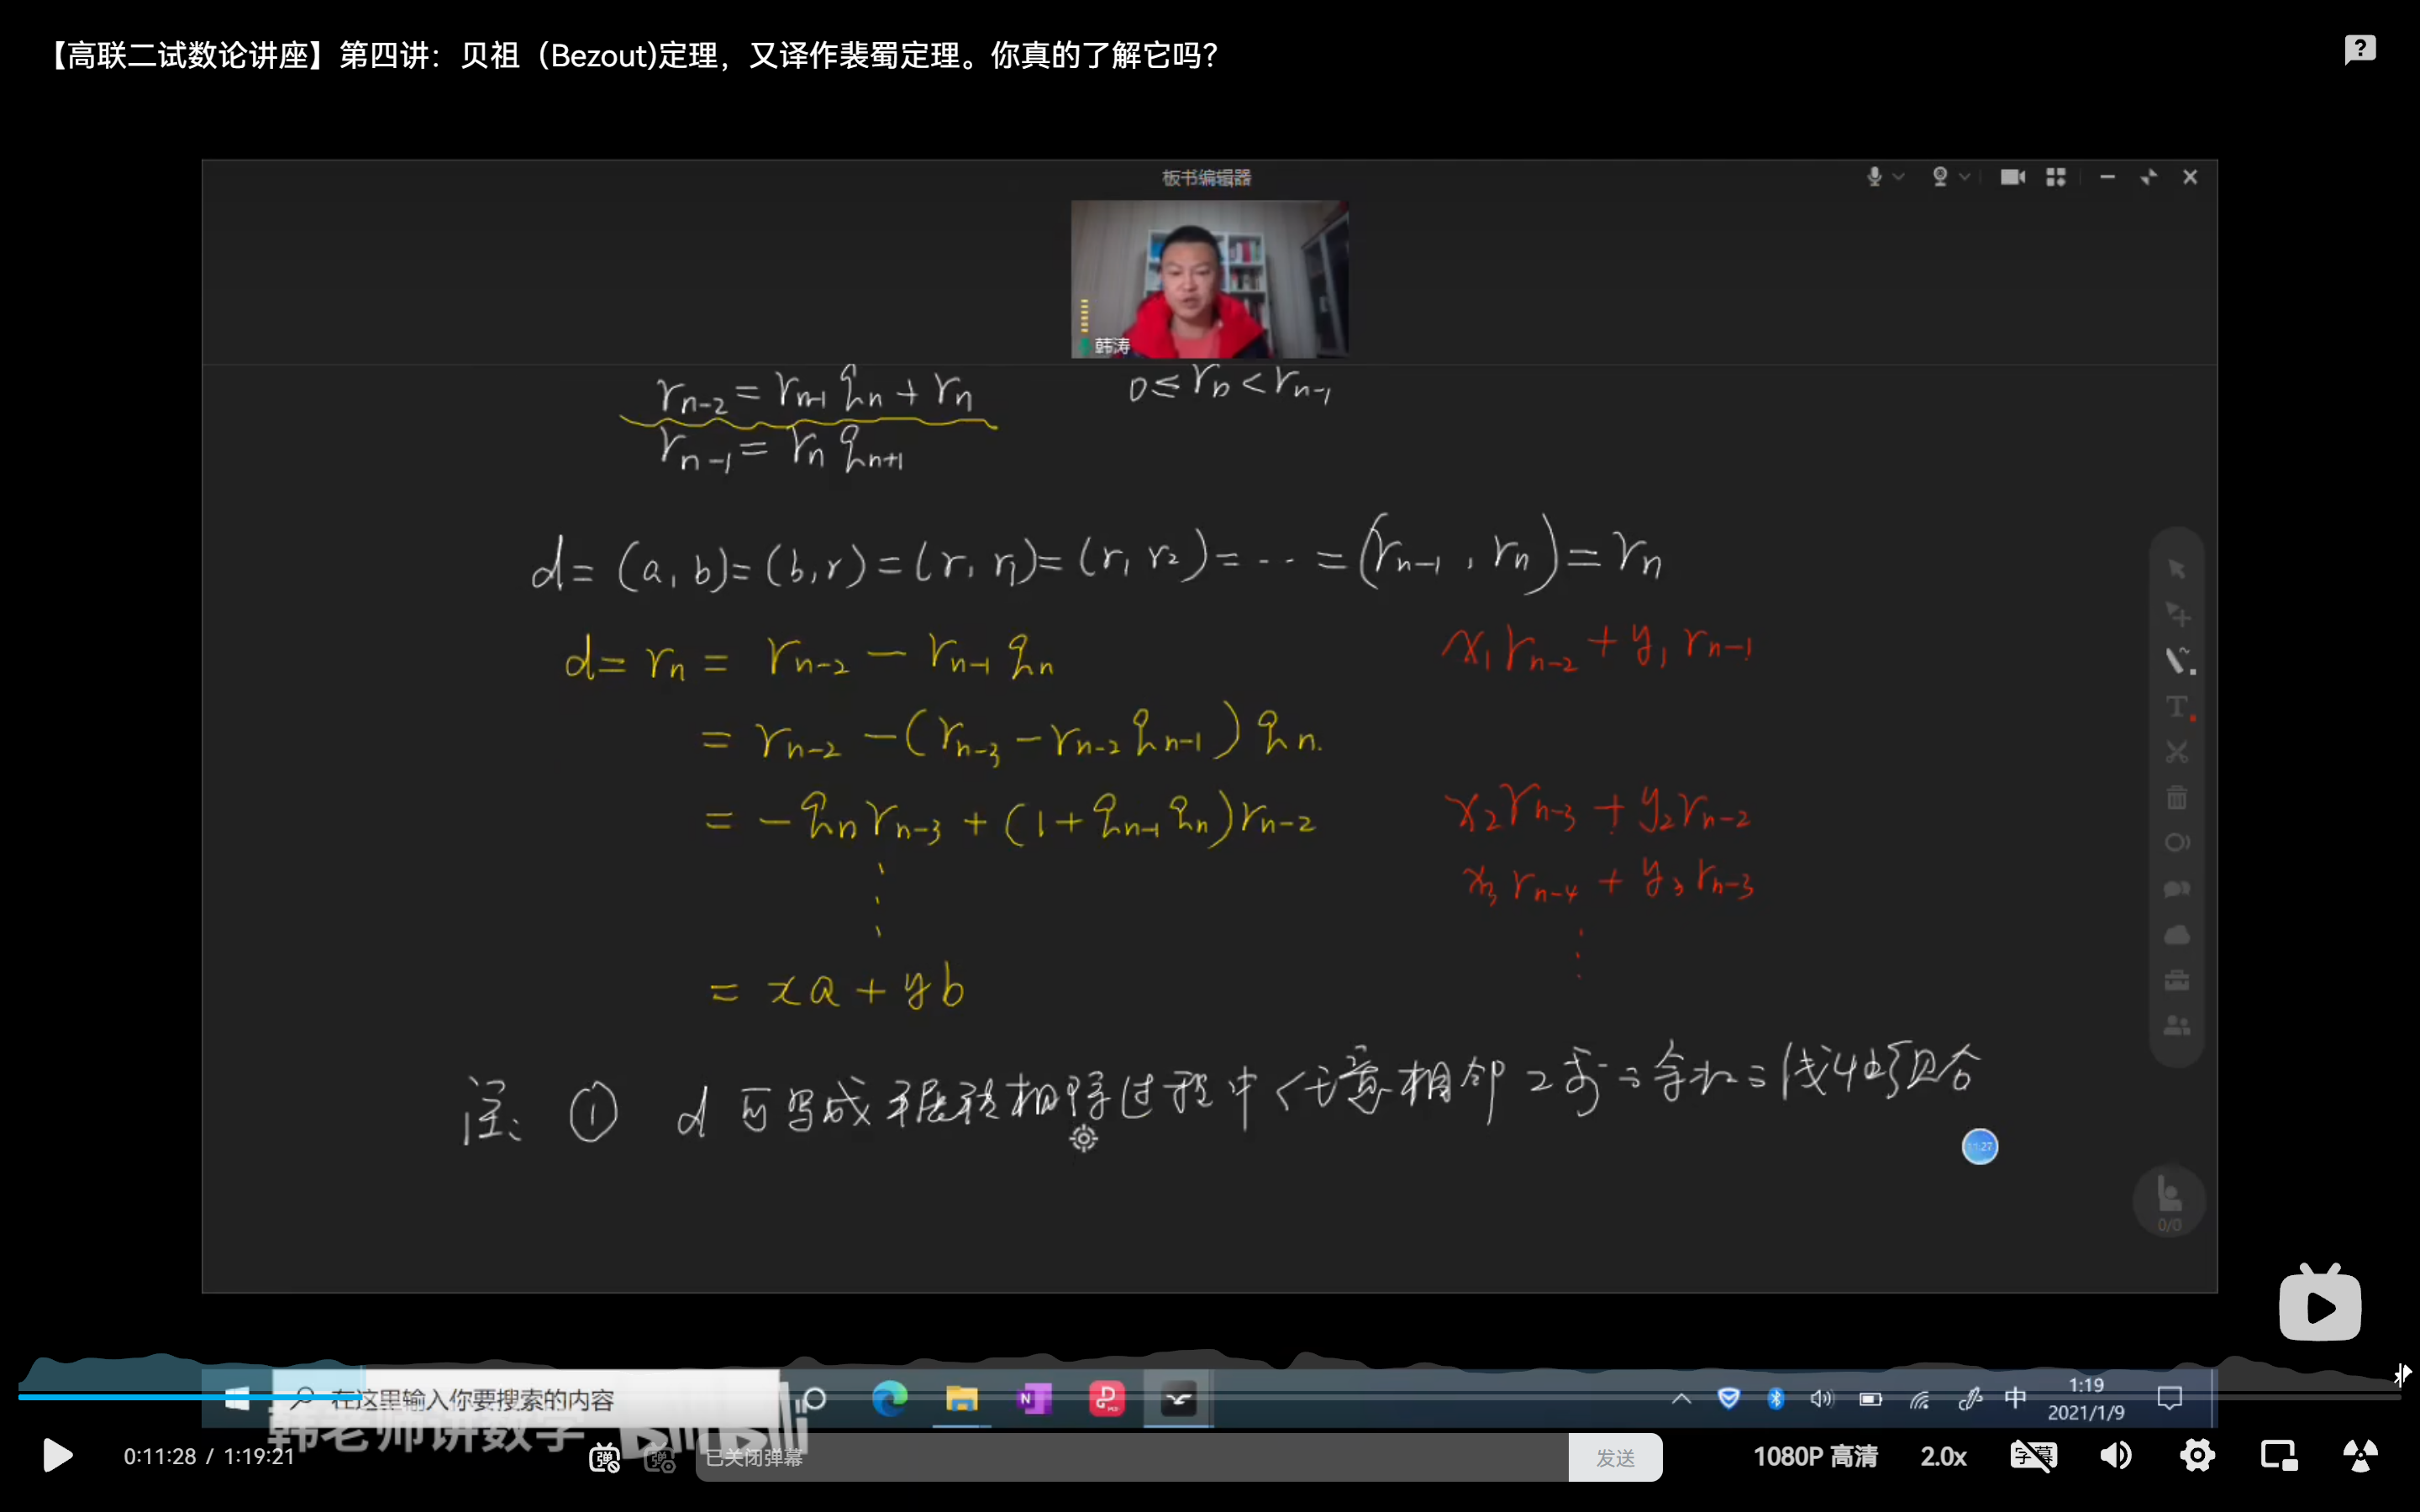 【高联二试数论讲座】第四讲：贝祖（Bezout)定理，又译作裴蜀定理。你真的了解它吗？
板书编辑器
韩涛
rₙ₋₂ = rₙ₋₁ qₙ + rₙ    0 ≤ rₙ < rₙ₋₁
rₙ₋₁ = rₙ qₙ₊₁
d = (a, b) = (b, r) = (r, r₁) = (r₁ r₂) = … = (rₙ₋₁, rₙ) = rₙ
d = rₙ = rₙ₋₂ − rₙ₋₁ qₙ    x₁rₙ₋₂ + y₁rₙ₋₁
= rₙ₋₂ − (rₙ₋₃ − rₙ₋₂ qₙ₋₁) qₙ.
= −qₙ rₙ₋₃ + (1 + qₙ₋₁ qₙ) rₙ₋₂    x₂rₙ₋₃ + y₂rₙ₋₂
x₃rₙ₋₄ + y₃rₙ₋₃
= xa + yb
注: ① d 可写成辗转相除过程中任意相邻2项之余数之线性组合
11:27
0/0
在这里输入你要搜索的内容
中
1:19
2021/1/9
韩老师讲数学 bilibili
0:11:28 / 1:19:21
弹
弹
已关闭弹幕
发送
1080P 高清
2.0x
字幕